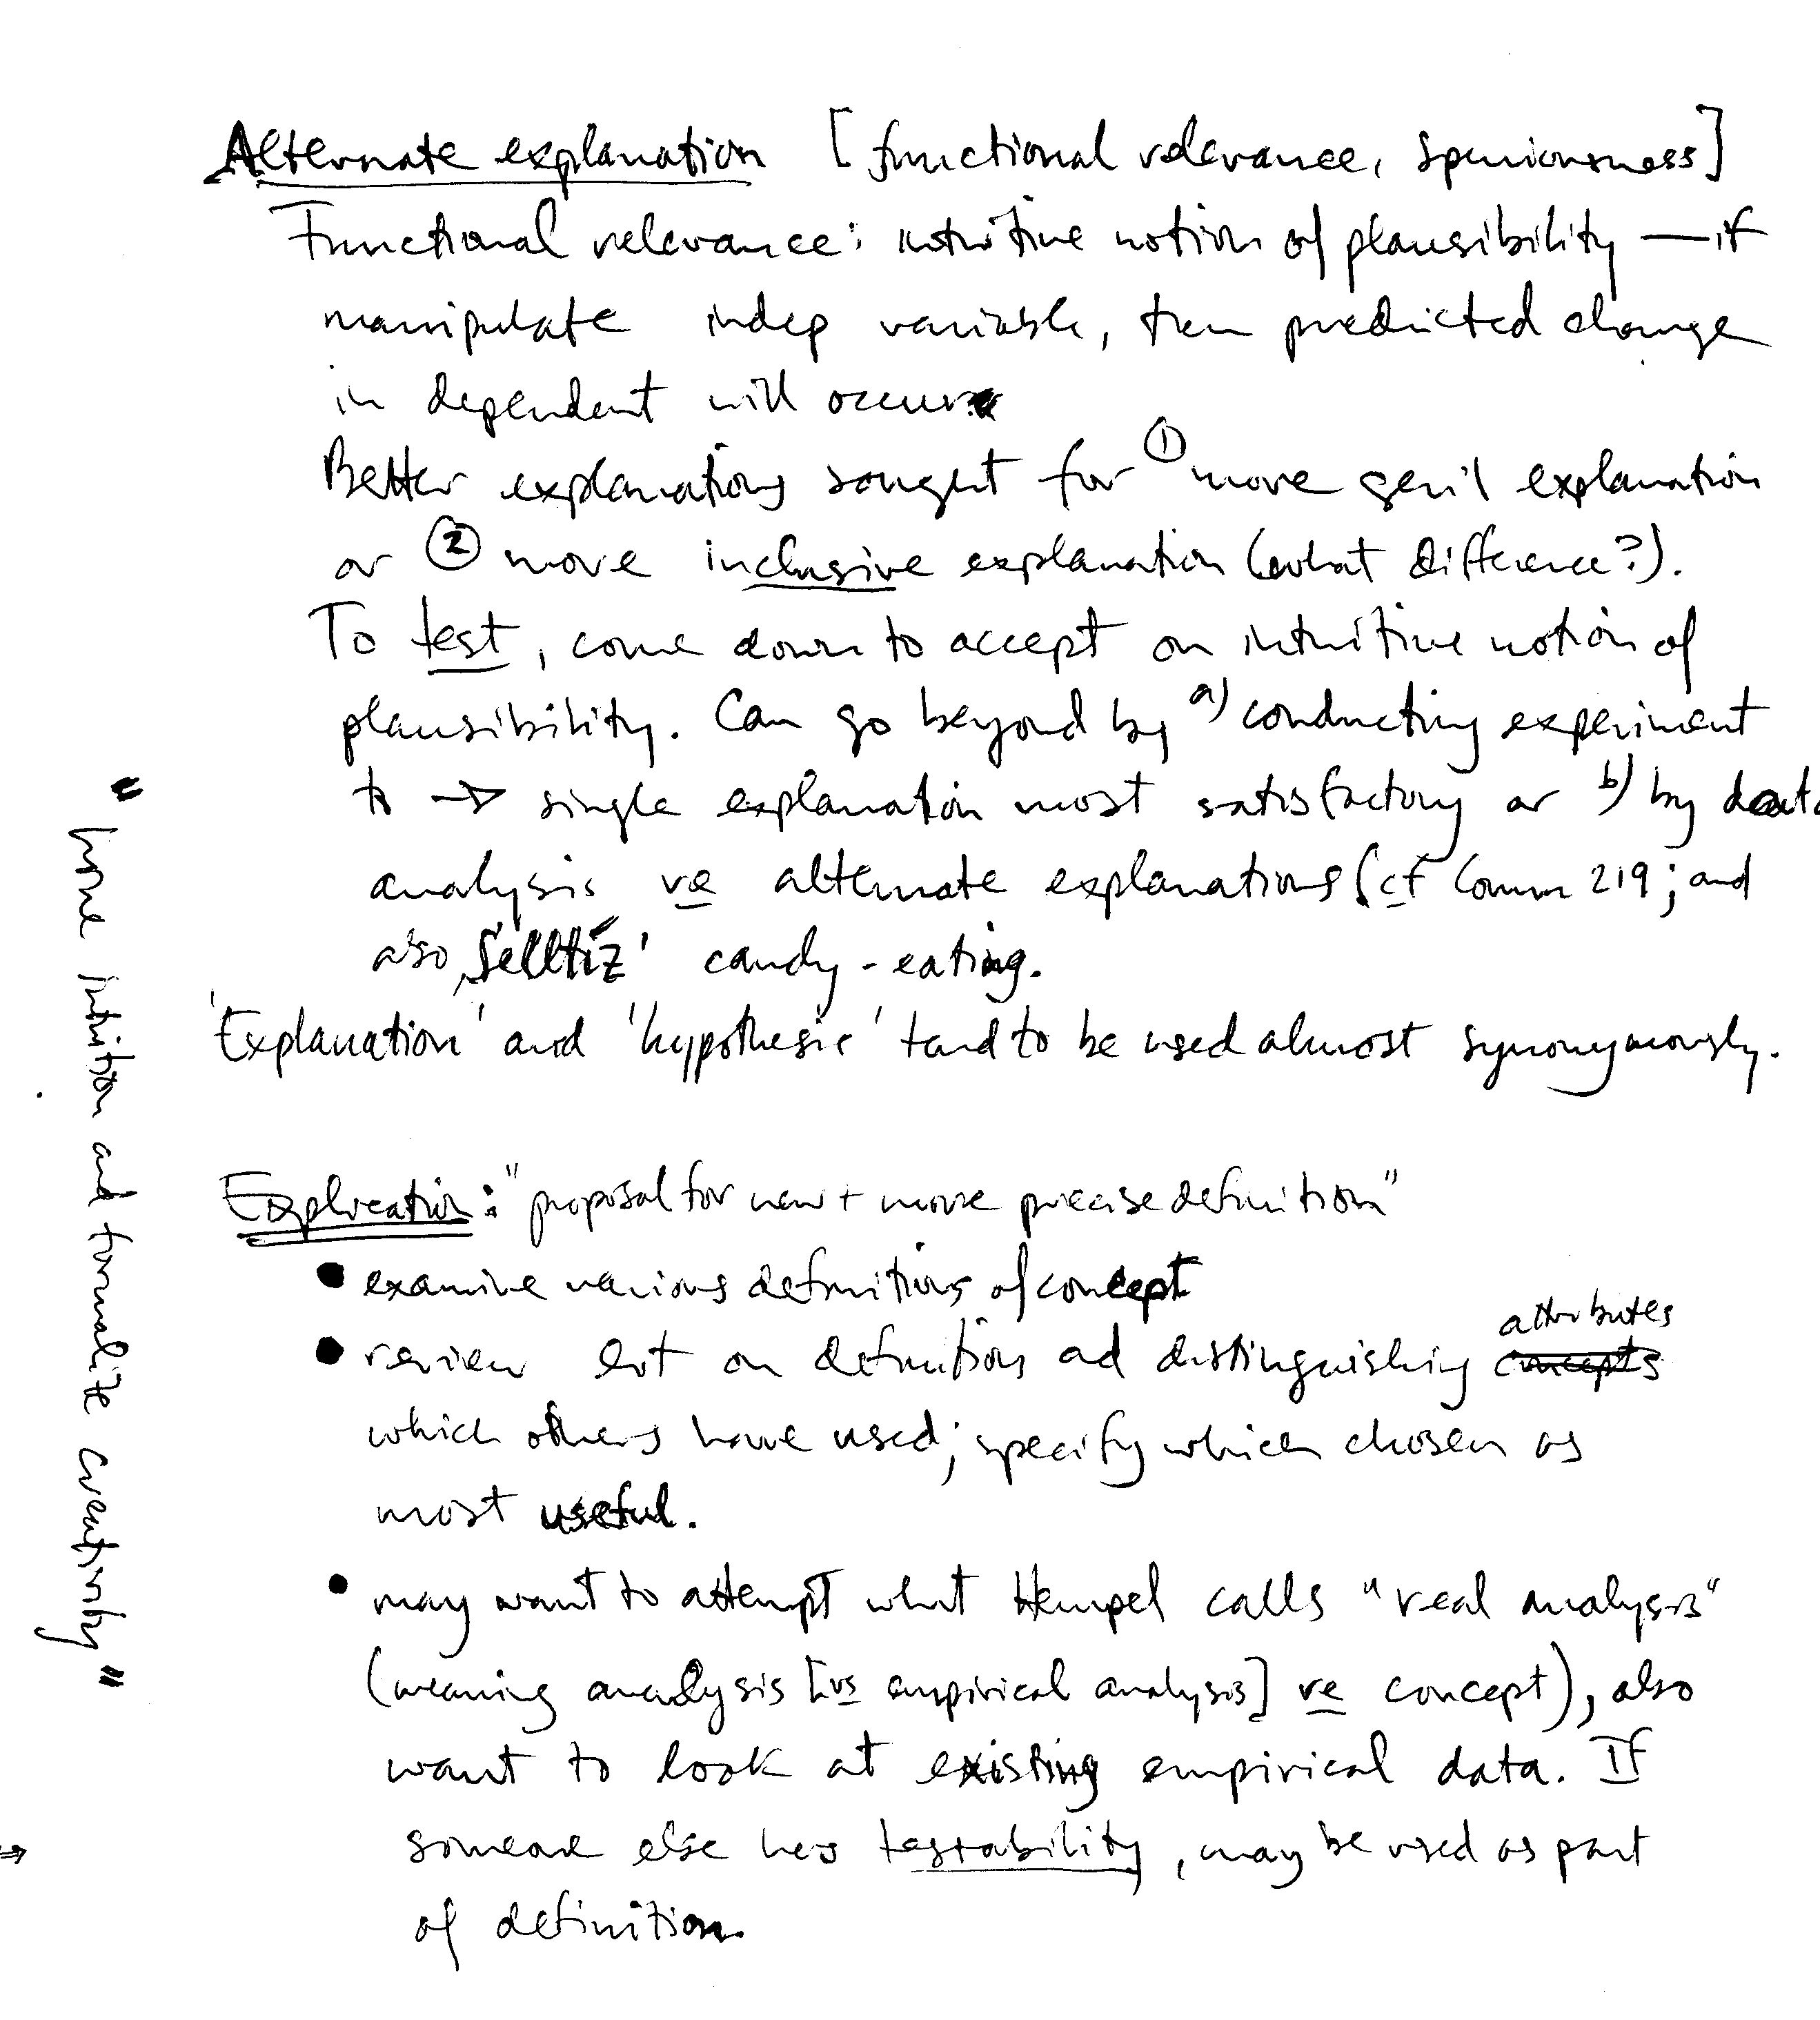 Alternate explanation [functional relevance, spuriousness]
Functional relevance: intuitive notion of plausibility — if
manipulate indep variable, then predicted change
in dependent will occur
Better explanations sought for ① more gen'l explanation
or ② more inclusive explanation (what difference?).
To test, come down to accept on intuitive notion of
plausibility. Can go beyond by a) conducting experiment
to → single explanation most satisfactory or b) by data
analysis re alternate explanations (cf Comm 219; and
also, Selltiz' candy-eating.
'Explanation' and 'hypothesis' tend to be used almost synonymously.
Explication: "proposal for new + more precise definition"
• examine various definitions of concept
• review lit on definitions and distinguishing concepts attributes
which others have used; specify which chosen as
most useful.
• may want to attempt what Hempel calls "real analysis"
(meaning analysis [vs empirical analysis] re concept), also
want to look at existing empirical data. If
⇒ someone else has testability, may be used as part
of definition.
"hone intuition and formalize creativity"